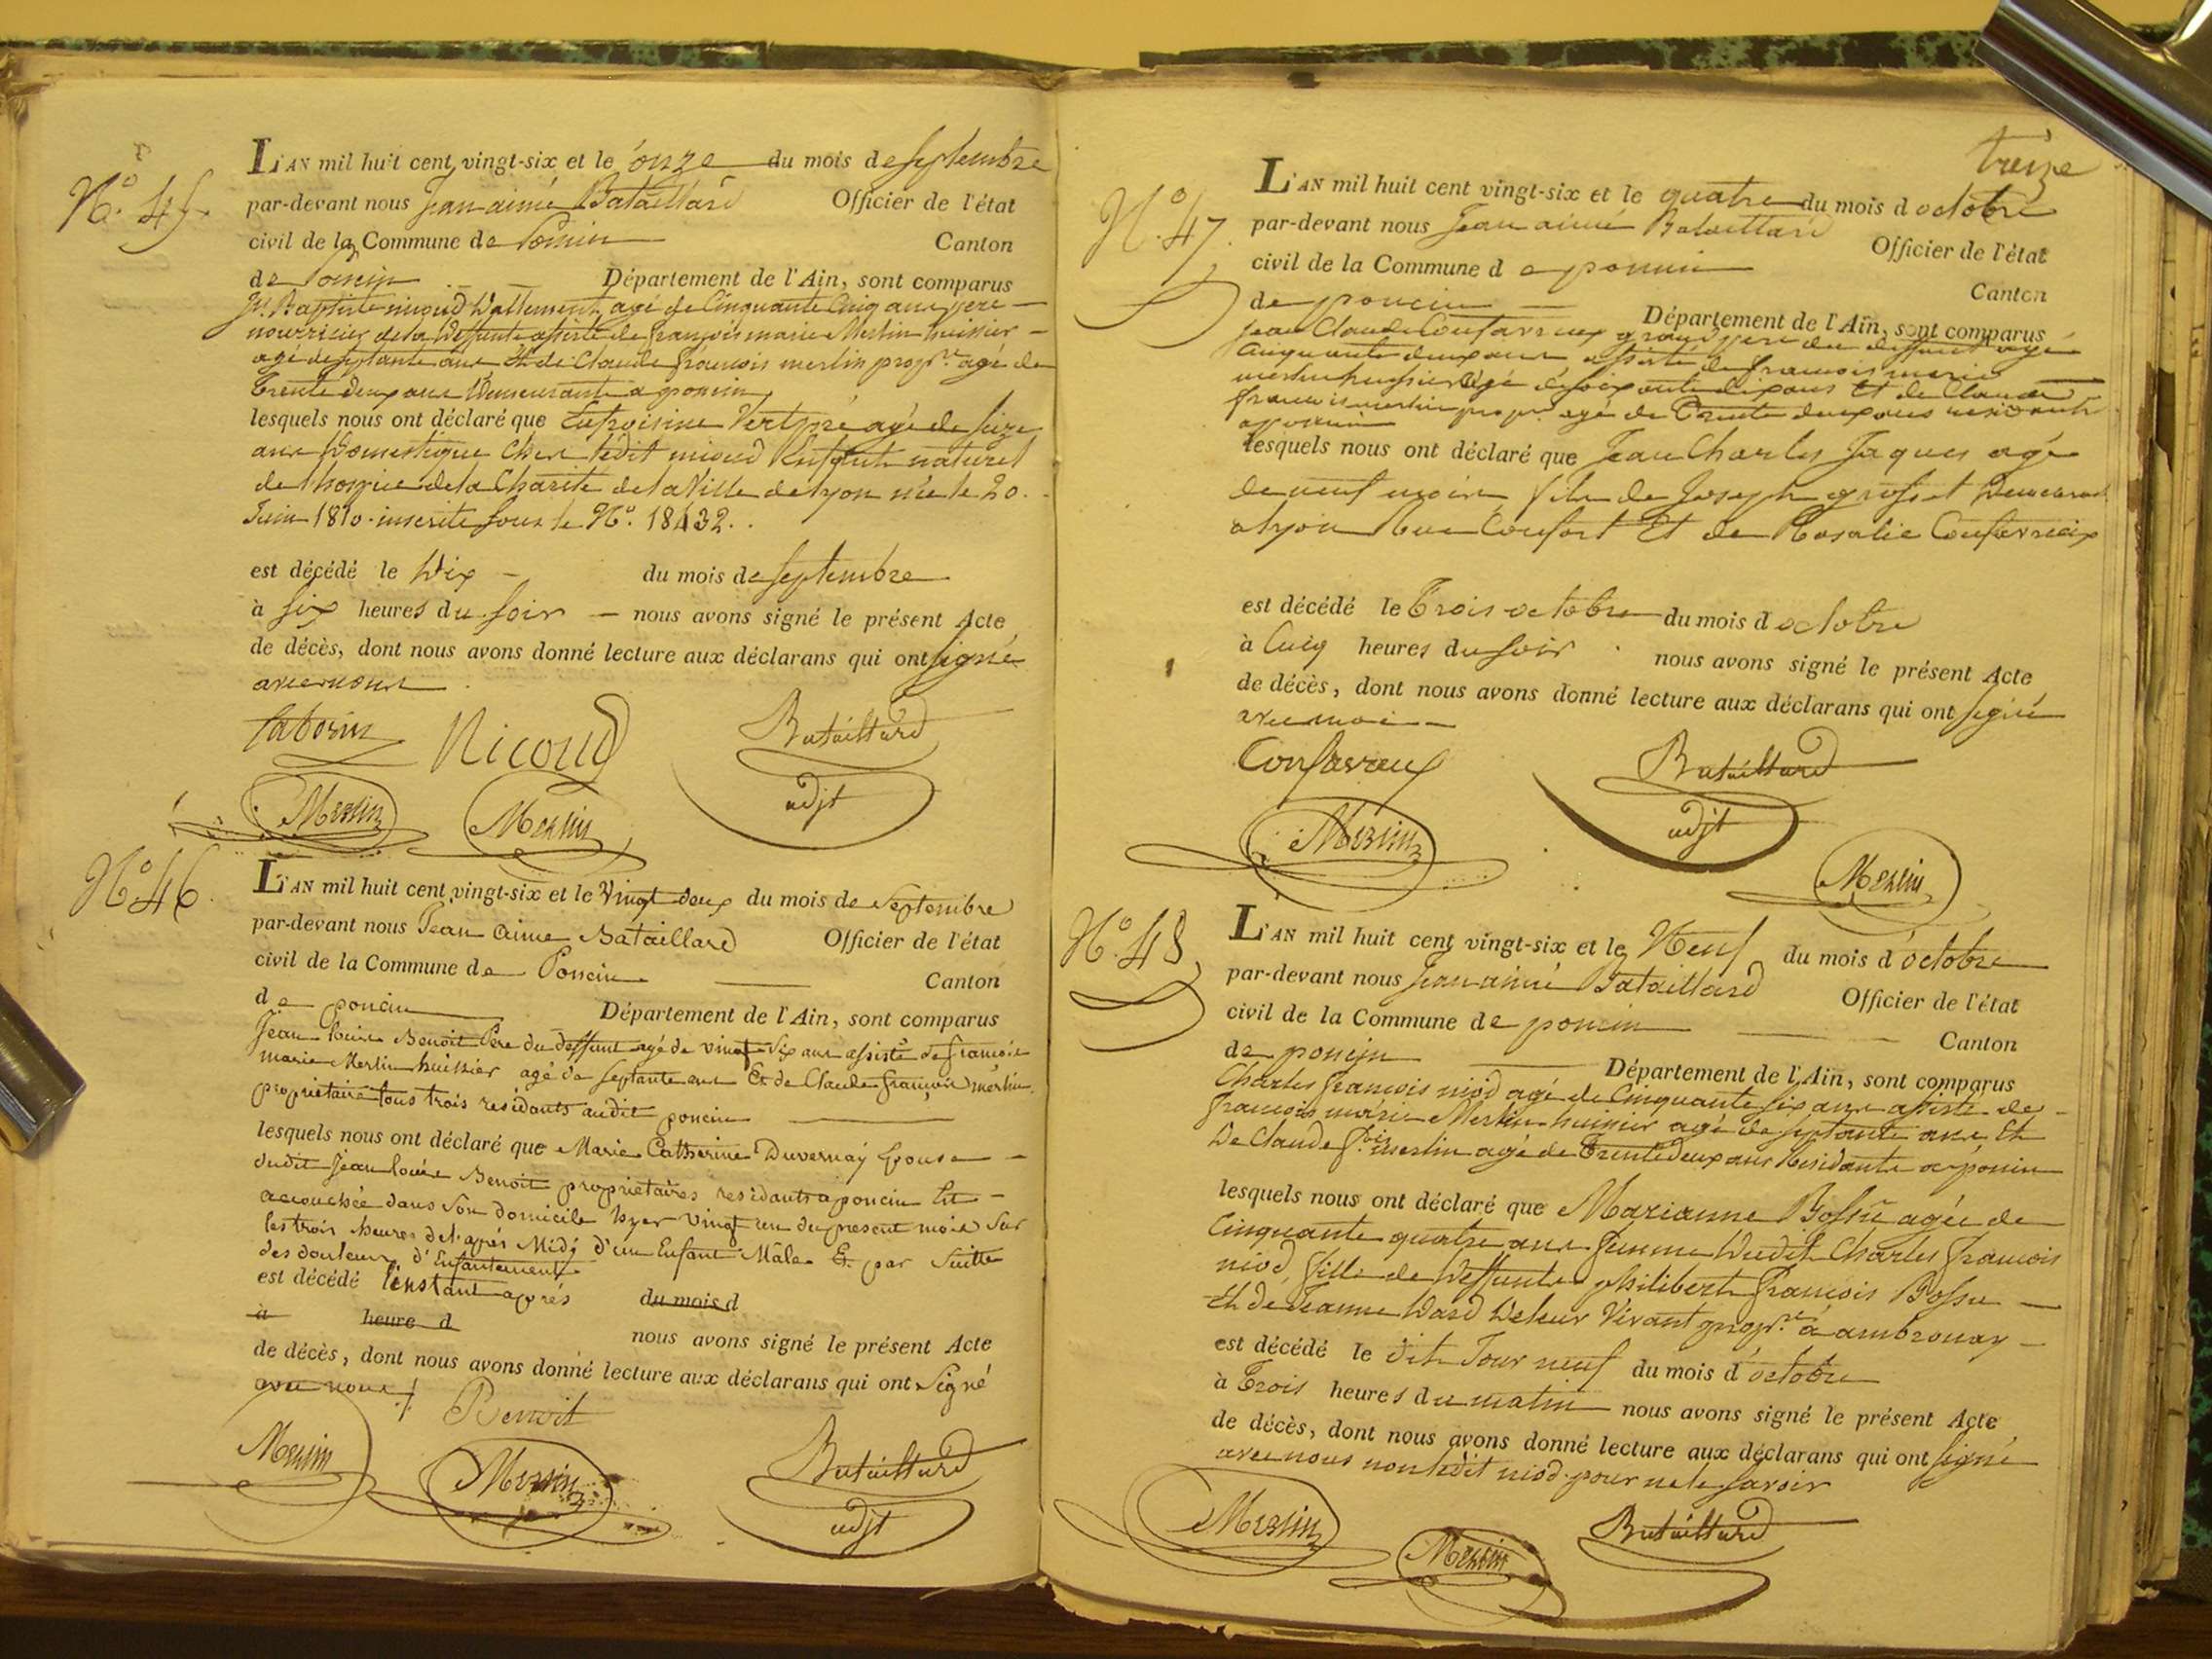 N.o 45
L'AN mil huit cent vingt-six et le onze du mois de septembre
par-devant nous Jean aimé Bataillard Officier de l'état
civil de la Commune de Poncin Canton
de Poncin Département de l'Ain, sont comparus
Jn. Baptiste agé de Cinquante Cinq ans pere
nourricier de la deffunte assisté de françois marie Merlin huissier
agé de septante ans Et de Claude françois merlin propre. agé de
trente deux ans demeurants a poncin
lesquels nous ont déclaré que Eufroisine Vertpré agé de seize
ans Domestique Chez ledit nicoud Enfant naturel
de lhospice de la Charité de la Ville de lyon née le 20.
Juin 1810. inscrite sous le No. 18432.
est décédé le dix du mois de septembre
à six heures du soir nous avons signé le présent Acte
de décès, dont nous avons donné lecture aux déclarans qui ont signé
avec nous
Nicoud Bataillard
Merlin Merlin adjt
No 46
L'AN mil huit cent vingt-six et le Vingt deux du mois de Septembre
par-devant nous Jean Aimé Bataillard Officier de l'état
civil de la Commune de Poncin Canton
de poncin Département de l'Ain, sont comparus
Jean louis Benoit Père du deffunt agé de vingt six ans assisté de françois
marie Merlin huissier agé de septante ans Et de Claude françois merlin
propriétaire tous trois residants audit poncin
lesquels nous ont déclaré que Marie Catherine Duvernay Epouse
dudit Jean louis Benoit proprietaires residants a poncin Est
accouchée dans son domicile hyer vingt un du present mois sur
les trois heures de l'après Midy d'un Enfant Mâle Et par suitte
des douleurs d'Enfantement
est décédé l'instant après du mois d
à heure d nous avons signé le présent Acte
de décès, dont nous avons donné lecture aux déclarans qui ont Signé
avec nous
Benoit
Merlin Merlin Bataillard
adjt
treize
N.o 47
L'AN mil huit cent vingt-six et le quatre du mois d octobre
par-devant nous Jean aimé Bataillard Officier de l'état
civil de la Commune d e poncin Canton
de poncin Département de l'Ain, sont comparus
Jean Claude Confavreux grand pere du deffunt agé
Cinquante deux ans assisté de francois marie
merlin huissier agé de soixante dix ans Et de Claude
francois merlin propre agé de Trente deux ans residants
a poncin
lesquels nous ont déclaré que Jean Charles Jaques agé
de neuf mois fils de Joseph grosset demeurant
a lyon Rue Confort Et de Rosalie Confavreux
est décédé le Trois octobre du mois d octobre
à Cinq heures du soir nous avons signé le présent Acte
de décès, dont nous avons donné lecture aux déclarans qui ont signé
avec moi
Confavreux Bataillard
Merlin adjt
Merlin
No. 48
L'AN mil huit cent vingt-six et le Neuf du mois d'octobre
par-devant nous Jean aimé Bataillard Officier de l'état
civil de la Commune de poncin Canton
de poncin Département de l'Ain, sont comparus
Charles francois niod agé de Cinquante six ans assisté de
francois marie Merlin huissier agé de septante ans Et
De Claude fois. merlin agé de Trente deux ans Residants a poncin
lesquels nous ont déclaré que Marianne Bossu agée de
Cinquante quatre ans femme Dudit Charles francois
niod fille de Deffunts philibert francois Bossu
Et de Jeanne de leur Vivant propre. à ambronay
est décédé le dit Jour neuf du mois d'octobre
à Trois heures du matin nous avons signé le présent Acte
de décès, dont nous avons donné lecture aux déclarans qui ont signé
avec nous non ledit niod pour ne le savoir
Merlin Merlin Bataillard